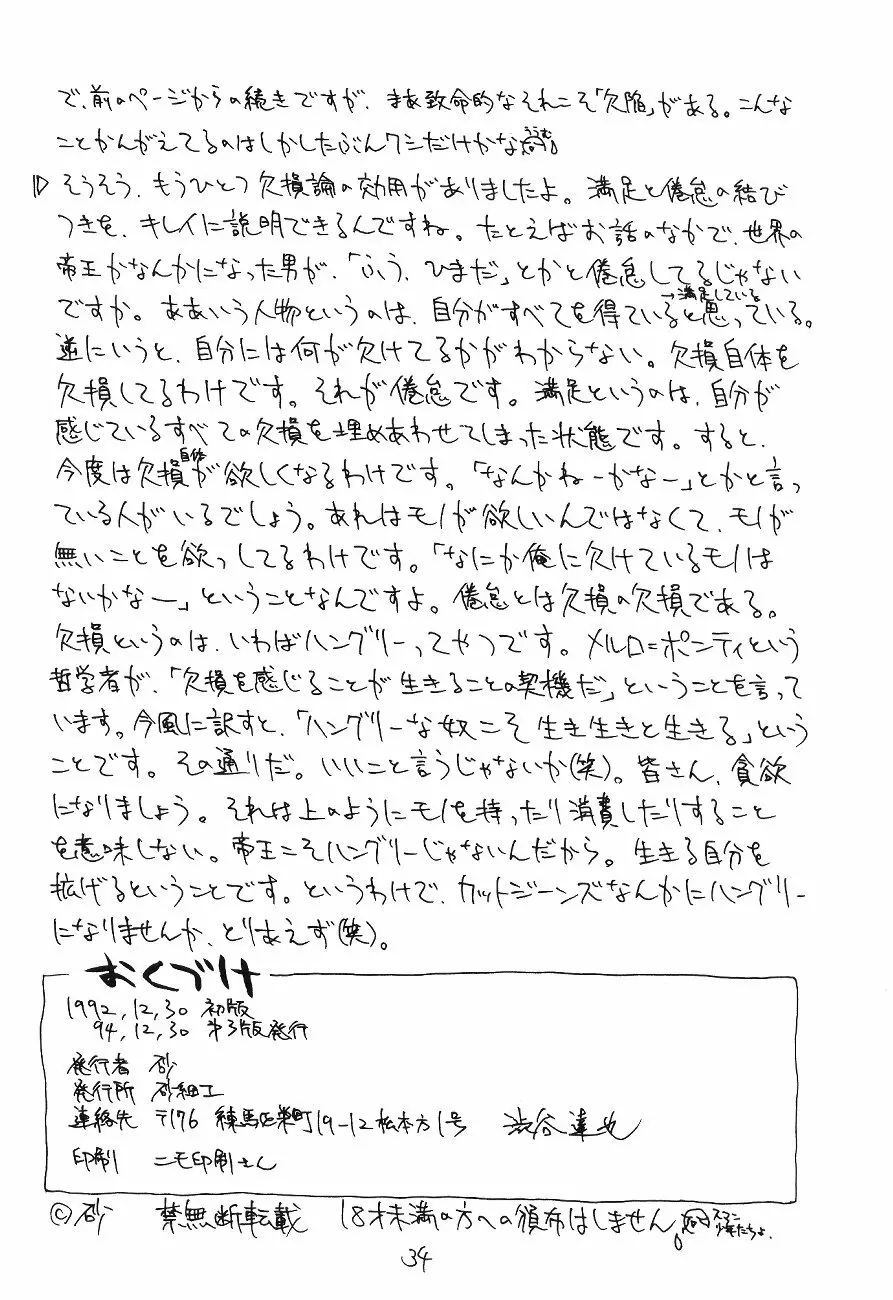 で、前のページからの続きですが、まあ致命的なそれこそ「欠陥」がある。こんな
ことかんがえてるのはしかしたぶんワシだけかな
そうそう、もうひとつ欠損論の効用がありましたよ。満足と倦怠の結び
つきを、キレイに説明できるんですね。たとえばお話のなかで、世界の
帝王かなんかになった男が、「ふう、ひまだ」とかと倦怠してるじゃない
ですか。ああいう人物というのは、自分がすべてを得ていると思っている。
→満足している
逆にいうと、自分には何が欠けてるかがわからない。欠損自体を
欠損してるわけです。それが倦怠です。満足というのは、自分が
感じているすべての欠損を埋めあわせてしまった状態です。すると、
今度は欠損自体が欲しくなるわけです。「なんかねーかなー」とかと言っ
ている人がいるでしょう。あれはモノが欲しいんではなくて、モノが
無いことを欲っしてるわけです。「なにか俺に欠けているモノは
ないかなー」ということなんですよ。倦怠とは欠損の欠損である。
欠損というのは、いわばハングリーってやつです。メルロ=ポンティという
哲学者が、「欠損を感じることが生きることの契機だ」ということを言って
います。今風に訳すと、「ハングリーな奴こそ生き生きと生きる」という
ことです。その通りだ。いいこと言うじゃないか(笑)。皆さん、貪欲
になりましょう。それは上のようにモノを持ったり消費したりすること
を意味しない。帝王こそハングリーじゃないんだから。生きる自分を
拡げるということです。というわけで、カットジーンズなんかにハングリー
になりませんか、とりあえず(笑)。
おくづけ
1992,12,30 初版
94,12,30 第3版発行
発行者 砂
発行所 砂細工
連絡先 〒176 練馬区栄町19-12松本方1号 渋谷達也
印刷 ニモ印刷さん
©砂 禁無断転載 18才未満の方への頒布はしません
34